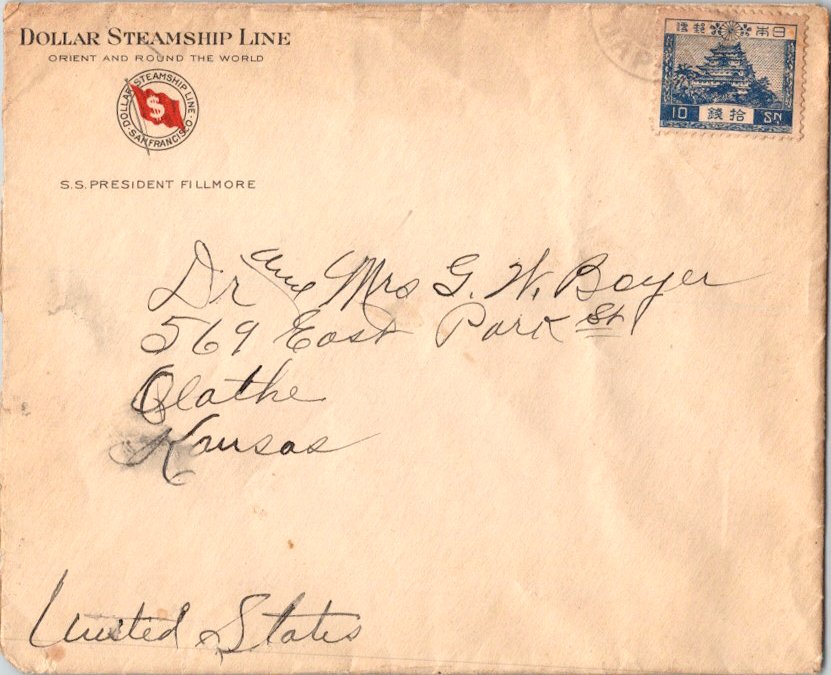 DOLLAR STEAMSHIP LINE
ORIENT AND ROUND THE WORLD
DOLLAR STEAMSHIP LINE
$
SAN FRANCISCO
S.S. PRESIDENT FILLMORE
JAP
日本郵便
10 拾錢 SN
Dr and Mrs G. W. Boyer
569 East Park St
Olathe
Kansas
United States